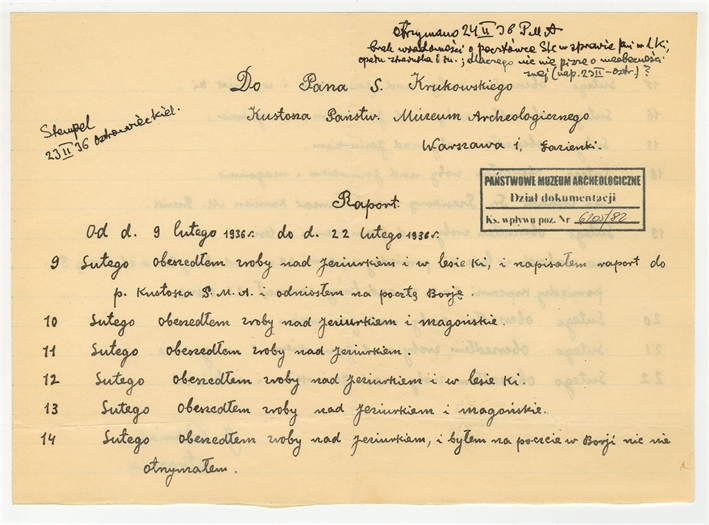 Otrzymano 24 II 36 P.M.A
brak wiadomości o pocztówce SK w sprawie
opału ; dlaczego nie pisze o nieobecności
mej (nap. 23 II – ostr.) ?
Do Pana S. Krukowskiego
Stempel
23 II 36 ostrowieckiel.
Kustosza Państw. Muzeum Archeologicznego
Warszawa 1, Łazienki.
PAŃSTWOWE MUZEUM ARCHEOLOGICZNE
Dział dokumentacji
Ks. wpływu poz. Nr 6105/82
Raport.
Od d. 9 lutego 1936 r. do d. 22 lutego 1936 r.
9 Lutego obeszedłem wroby nad Jeziurkiem i w lesie Ki, i napisałem raport do
p. Kustosza P.M.A. i odniosłem na pocztę Borja.
10 Lutego obeszedłem wroby nad Jeziurkiem i magońskie.
11 Lutego obeszedłem wroby nad Jeziurkiem.
12 Lutego obeszedłem wroby nad Jeziurkiem i w lesie Ki.
13 Lutego obeszedłem wroby nad Jeziurkiem i magońskie.
14 Lutego obeszedłem wroby nad Jeziurkiem, i byłem na poczcie w Borji nic nie
otrzymałem.